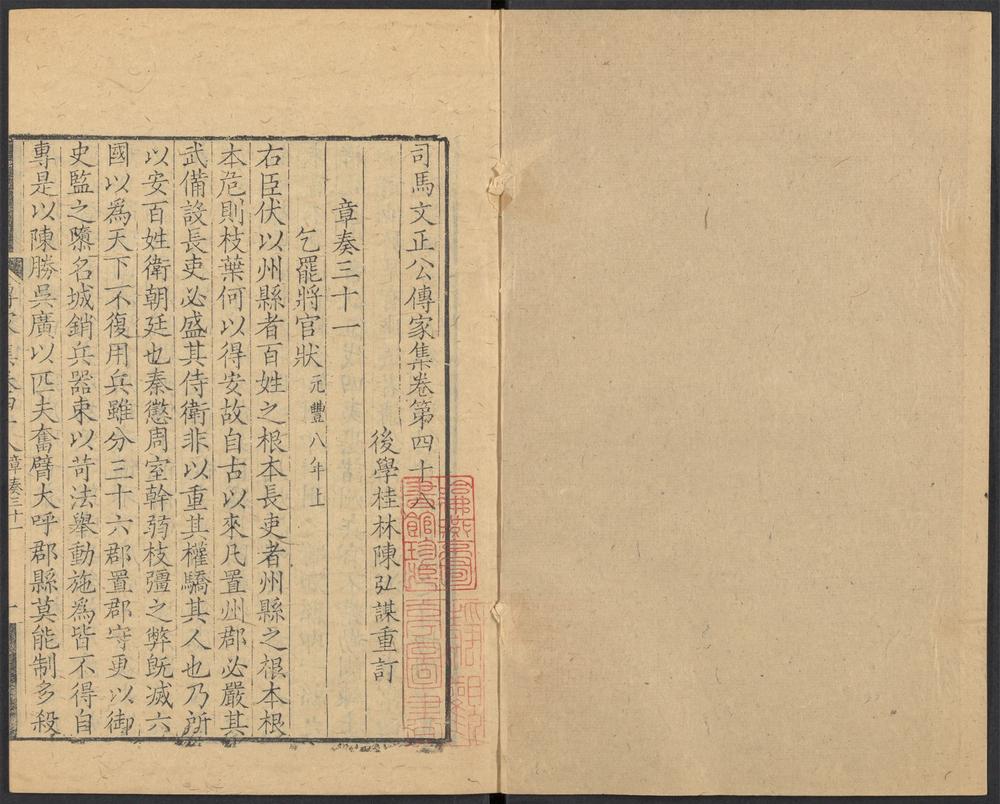 司馬文正公傳家集卷第四十八
後學桂林陳弘謀重訂
章奏三十一
乞罷將官狀元豐八年上
右臣伏以州縣者百姓之根本長吏者州縣之根本根
本危則枝葉何以得安故自古以來凡置州郡必嚴其
武備設長吏必盛其侍衛非以重其權驕其人也乃所
以安百姓衛朝廷也秦懲周室幹弱枝彊之弊旣滅六
國以爲天下不復用兵雖分三十六郡置郡守更以御
史監之隳名城銷兵器束以苛法舉動施爲皆不得自
專是以陳勝吳廣以匹夫奮臂大呼郡縣莫能制多殺
章奏三十一